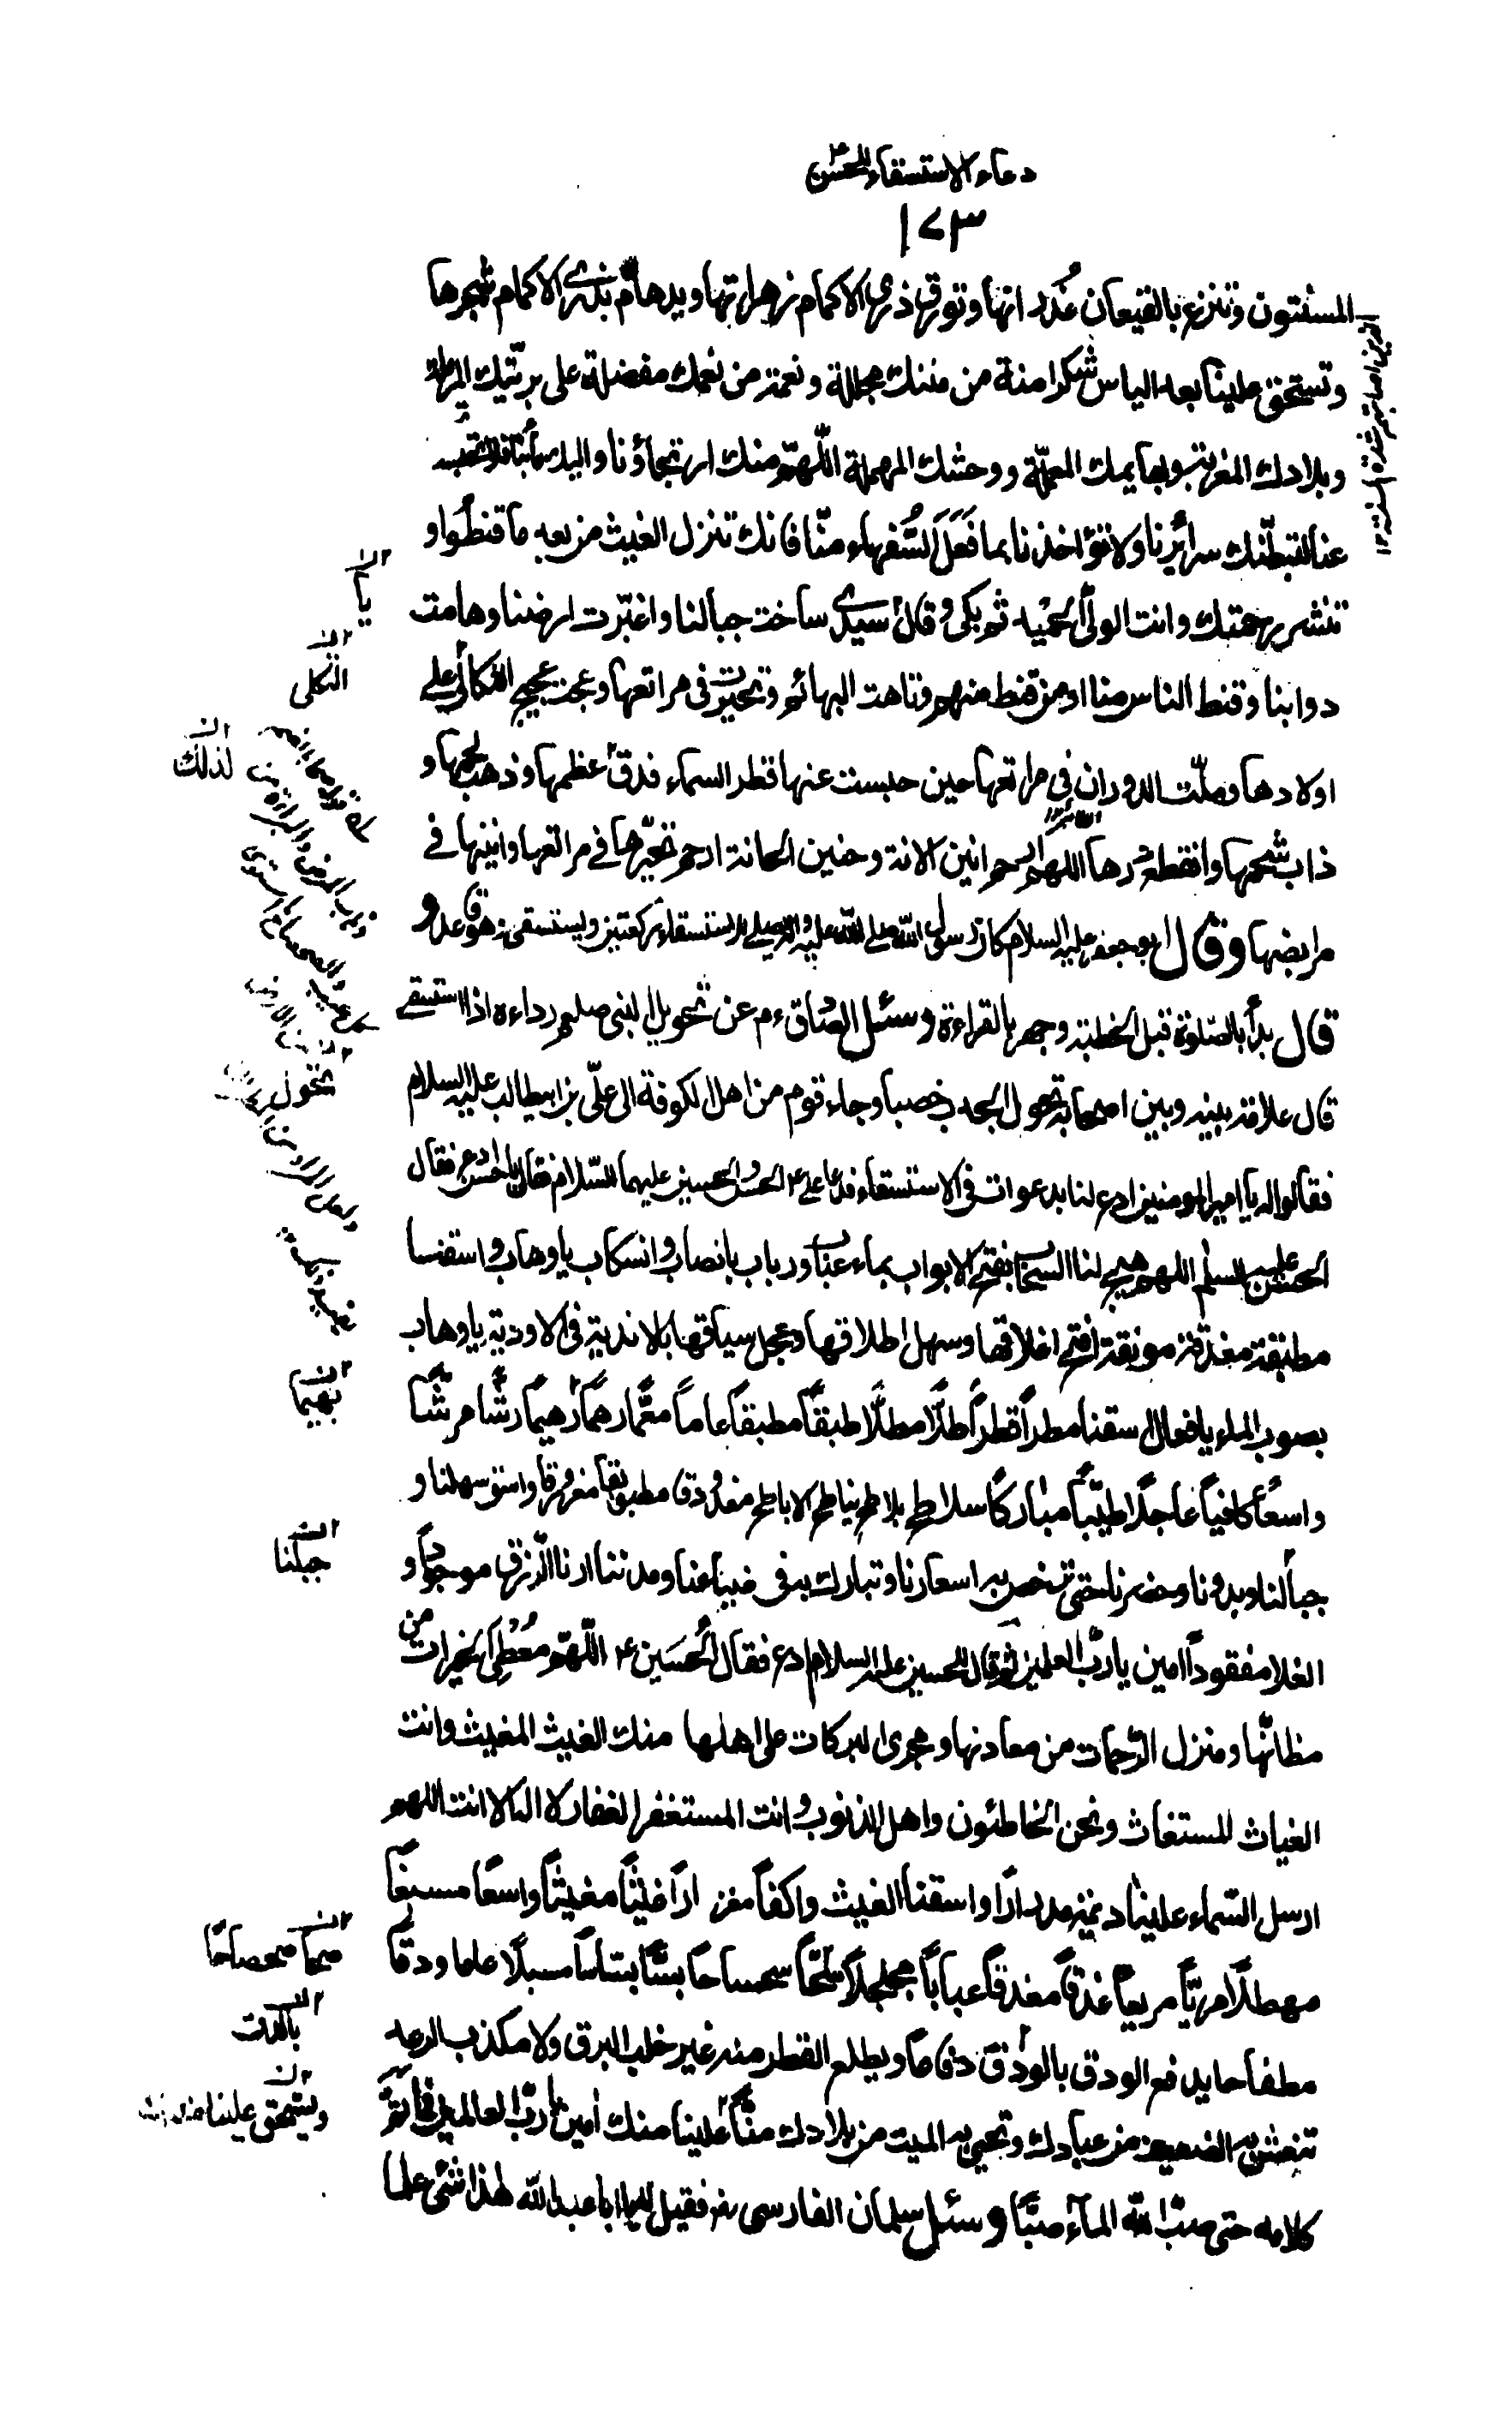 دعاء الاستسقاء للحسن ع
١٧٣
المسنتون وتترع بالقيعان غدرانها وتورق ذرى الاكام زهراتها ويدهام بذرى الاكمام شجرها
وتستحق علينا بعد الياس شكرا منة من مننك مجللة ونعمة من نعمك مفضلة على بريتك المرملة
وبلادك المغربة وبهايمك المعملة ووحشك المهملة اللّهمّ منك ارتجاؤنا واليك مآبنا فلا تحبسه
عنا لتبطّنك سرائرنا ولا تؤاخذنا بما فَعَلَ السُّفهاء منّا فانك تنزل الغيث من بعد ما قنطوا و
تنشر رحمتك وانت الولىّ الحميد ثم بكى و قال سيدى ساخت جبالنا واغبرّت ارضنا وهامت
دوابنا وقنط الناس منا او من قنط منهم وتاهت البهائم وتحيرت فى مراتعها وعجت عجيج الثكالى على
اولادها وملّت الدوران فى مراتعها حين حبست عنها قطر السماء فدق عظمها وذهب لحمها و
ذاب شحمها وانقطع درها اللهم ارحم انين الانة وحنين الحانة ارحم تحيّرها فى مراتعها وانينها فى
مرابضها وقال ابو جعفر عليه السلام كان رسول اللّه صلى اللّه عليه واله يصلى للاستسقاء ركعتين ويستسقى وهو قاعد و
قال بدأ بالصلوة قبل الخطبة وجهر بالقراءة وسئل الصادق ع م عن تحويل النبى صلعم رداءه اذا استسقى
قال علامة بينه وبين اصحابه تحول الجدب خصبا وجاء قوم من اهل الكوفة الى علىّ بن ابيطالب عليه السلام
فقالوا له يا امير المومنين ادع لنا بدعوات فى الاستسقاء فدعا على ع الحسن و الحسين عليهما السّلام فقال يا حسن ادع فقال
الحسن عليه السلم اللهم هيج لنا السحاب بفتح الابواب بماء عباب ورباب بانصباب وانسكاب يا وهاب واسقنا
مطبقة مغدقة مونقة افتح اغلاقها وسهل اطلاقها وعجل سياقها بالاندية فى الاودية يا وهاب
بصوب الماء يا فعال اسقنا مطراً قطراً طلّا مطلّا طبقاً مطبقاً عاماً معمّا رهماً رهيماً رشّا مرشّاً
واسعاً كافياً عاجلا طيّباً مباركاً سلاطح بلاطح يناطح الابا طح مغدودقا مطبوبقا مغرورقا واسق سهلنا و
جبالنا وبدونا وحضرنا حتى ترخص به اسعارنا وتبارك به فى ضياعنا ومدننا ارنا الرّزق موجوداً و
الغلا مفقوداً امين يا ربّ العلمين ثم قال للحسين عليه السلام ادع فقال الحُسَين ع اللّهمّ مُعْطِىَ الخيرات من
مظانّها ومنزل الرّحمات من معادنها ومجرى البركات على اهلها منك الغيث المغيث وانت
الغياث المستغاث ونحن الخاطئون واهل الذنوب و انت المستغفر الغفار لا اله الا انت اللهم
ارسل السّماء علينا ديمة مدرارًا واسقنا الغيث واكفاً مغزارًا غيثاً مغيثاً واسعاً مسبغاً
مهطلاً مريّاً مريعاً غدقاً مغدقاً عباباً مجلجلاً سحّاً سحساحاً بسّاً بساساً مسبلًا عاما ودقاً
مطفاحا يدفع الودق بالودق دفاعاً ويطلع القطر منه غير خلب البرق ولا مكذب الرعد
تنعش به الضعيف من عبادك وتحيى به الميت من بلادك منّاً علينا منك امين يا ربّ العالمين فما تم
كلامه حتى صبّ اللّه المآء صبّاً و سئل سلمان الفارسى ره فقيل له يا ابا عبد اللّه هذا شئ علما
يا
الثكلى
لذلك
تحول
بهيما
جبلنا
سحا سحصاحًا
بالودق
وتستحق علينا